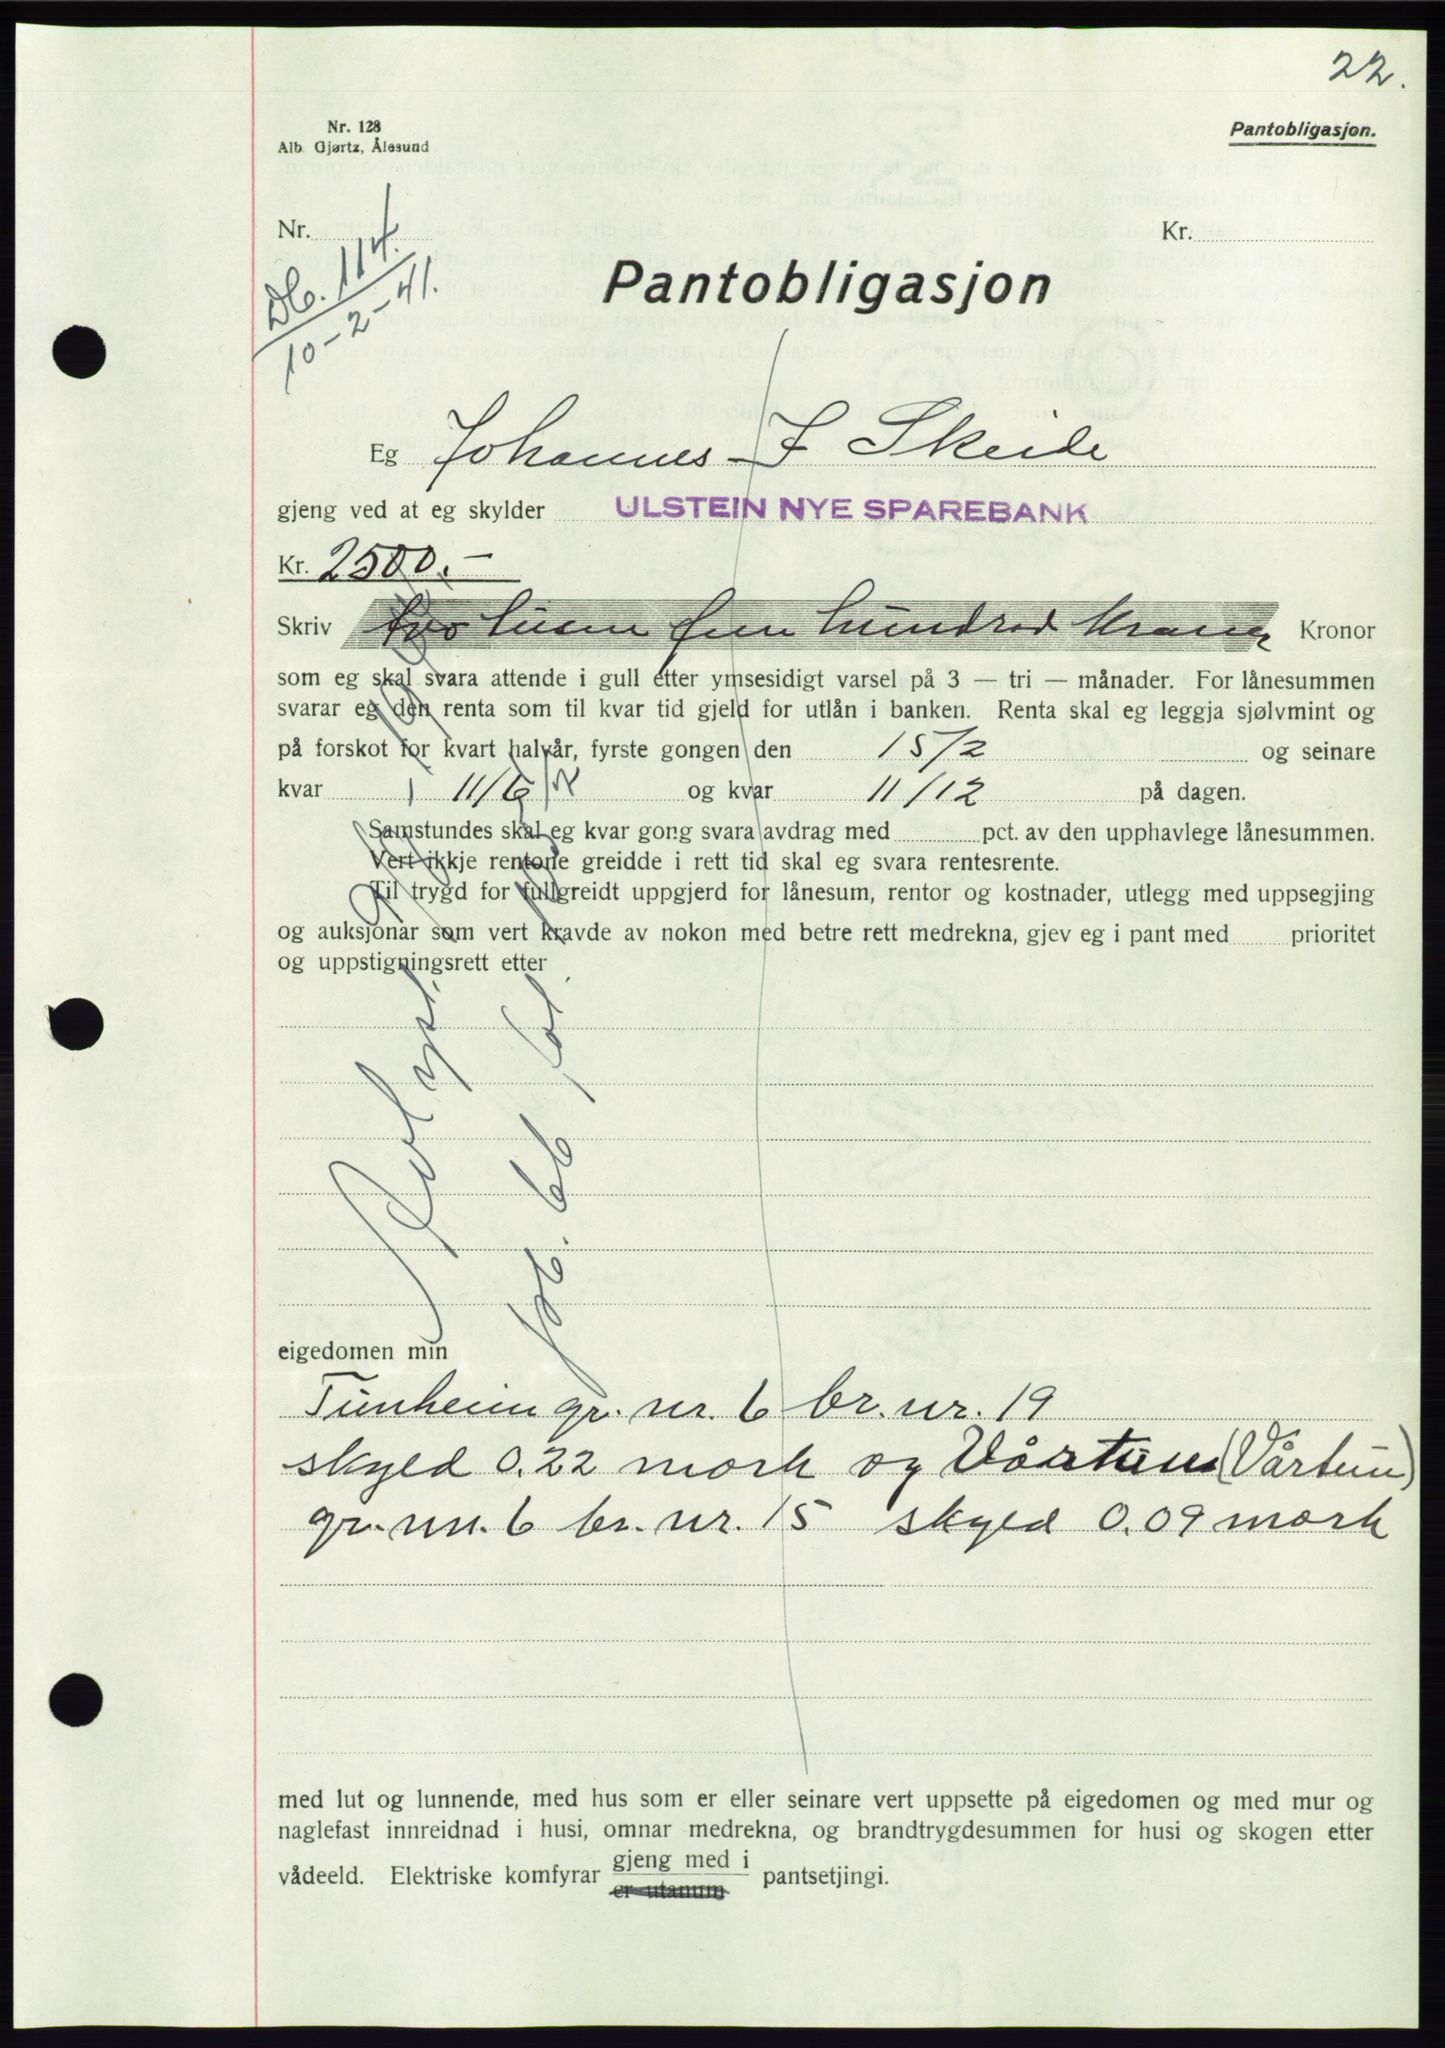 22.
Nr. 128
Alb. Gjørtz, Ålesund
Pantobligasjon.
Nr.
Kr.
Db. 114.
10-2-41.
Pantobligasjon
Eg Johannes J Skeide
gjeng ved at eg skylder ULSTEIN NYE SPAREBANK
Kr. 2500.-
Skriv tvo tusen fem hundred kroner Kronor
som eg skal svara attende i gull etter ymsesidigt varsel på 3 — tri — månader. For lånesummen
svarar eg den renta som til kvar tid gjeld for utlån i banken. Renta skal eg leggja sjølvmint og
på forskot for kvart halvår, fyrste gongen den 15/2 og seinare
kvar 11/6 og kvar 11/12 på dagen.
Samstundes skal eg kvar gong svara avdrag med pct. av den upphavlege lånesummen.
Vert ikkje rentone greidde i rett tid skal eg svara rentesrente.
Til trygd for fullgreidt uppgjerd for lånesum, rentor og kostnader, utlegg med uppsegjing
og auksjonar som vert kravde av nokon med betre rett medrekna, gjev eg i pant med prioritet
og uppstigningsrett etter
eigedomen min
Tunheim gr. nr. 6 br. nr. 19
skyld 0.22 mork og Vårtun (Vårtun)
gr. nr. 6 br. nr. 15 skyld 0.09 mork
med lut og lunnende, med hus som er eller seinare vert uppsette på eigedomen og med mur og
naglefast innreidnad i husi, omnar medrekna, og brandtrygdesummen for husi og skogen etter
vådeeld. Elektriske komfyrar gjeng med i pantsetjingi.
er utanum